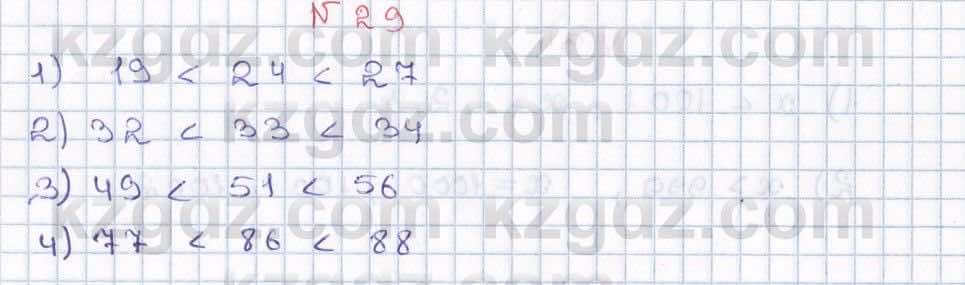 № 29
kzgdz.com kzgdz.com
1) 19 < 24 < 27
2) 32 < 33 < 34
kzgdz.com
3) 49 < 51 < 56
kzgdz.com kzgdz.com
4) 77 < 86 < 88